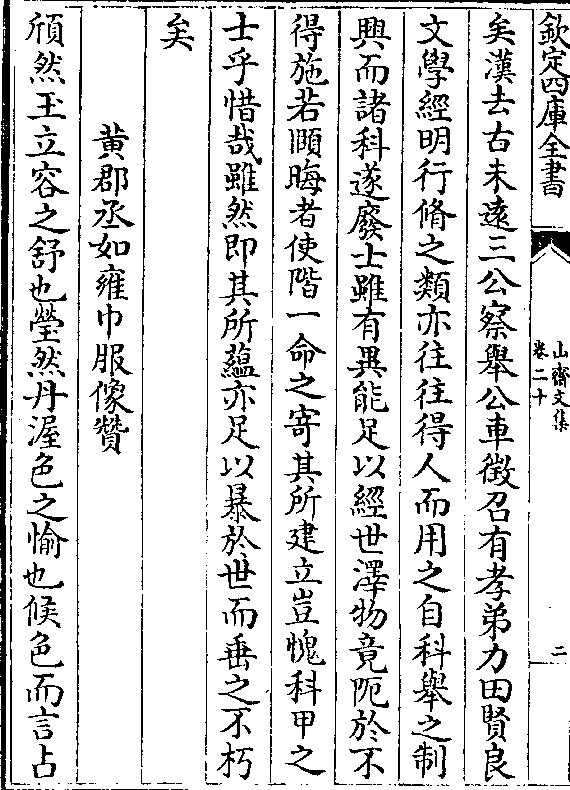 欽定四庫全書
山齋文集
卷二十
二
矣漢去古未遠三公察舉公車徴召有孝弟力田賢良
文學經明行脩之類亦往往得人而用之自科舉之制
興而諸科遂廢士雖有異能足以經世澤物竟阨於不
得施若頤晦者使階一命之寄其所建立豈愧科甲之
士乎惜哉雖然即其所蘊亦足以暴於世而垂之不朽
矣
黄郡丞如雍巾服像贊
頎然玉立容之舒也瑩然丹渥色之愉也候色而言占